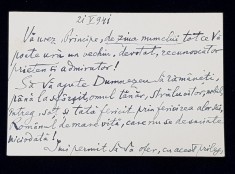 21 V 941
Vă urez, Principe, de ziua numelui tot ce Vă
poate ura un vechiu, devotat, recunoscător
prieten și admirator!
Să Vă ajute Dumnezeu să rămâneți,
până la sfârșit, omul tânăr, strălucitor, soțul
întreg, soț și tată fericit prin fericirea alor săi,
Românul de mare viță, care nu se desminte
niciodată!
Îmi permit să Vă ofer, cu acest prilej,